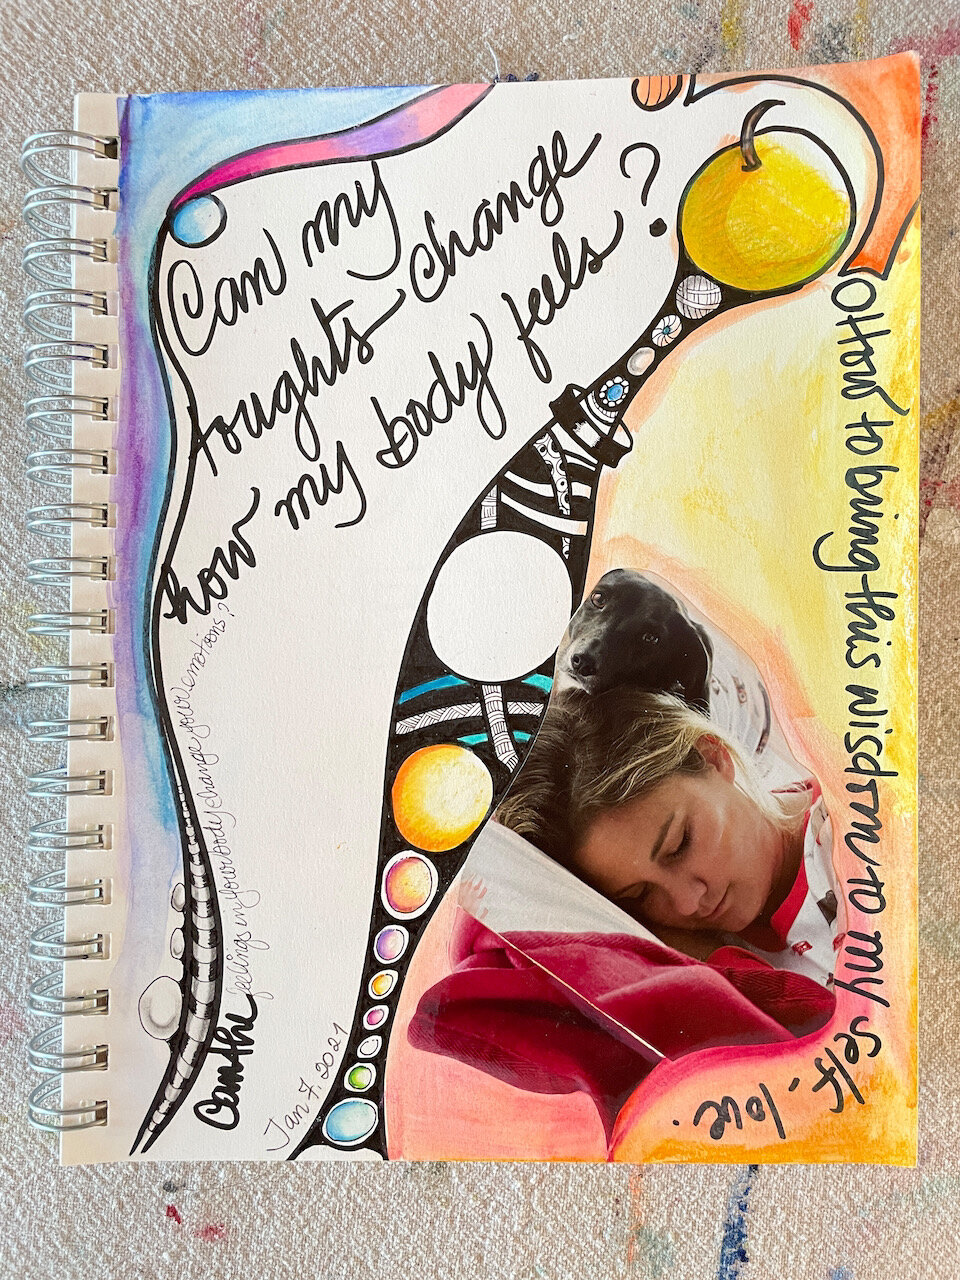 Can my
toughts change
how my body feels?
Can the feelings in your body change your emotions?
Jan 7, 2021
How to bring this wisdom to my self-love.